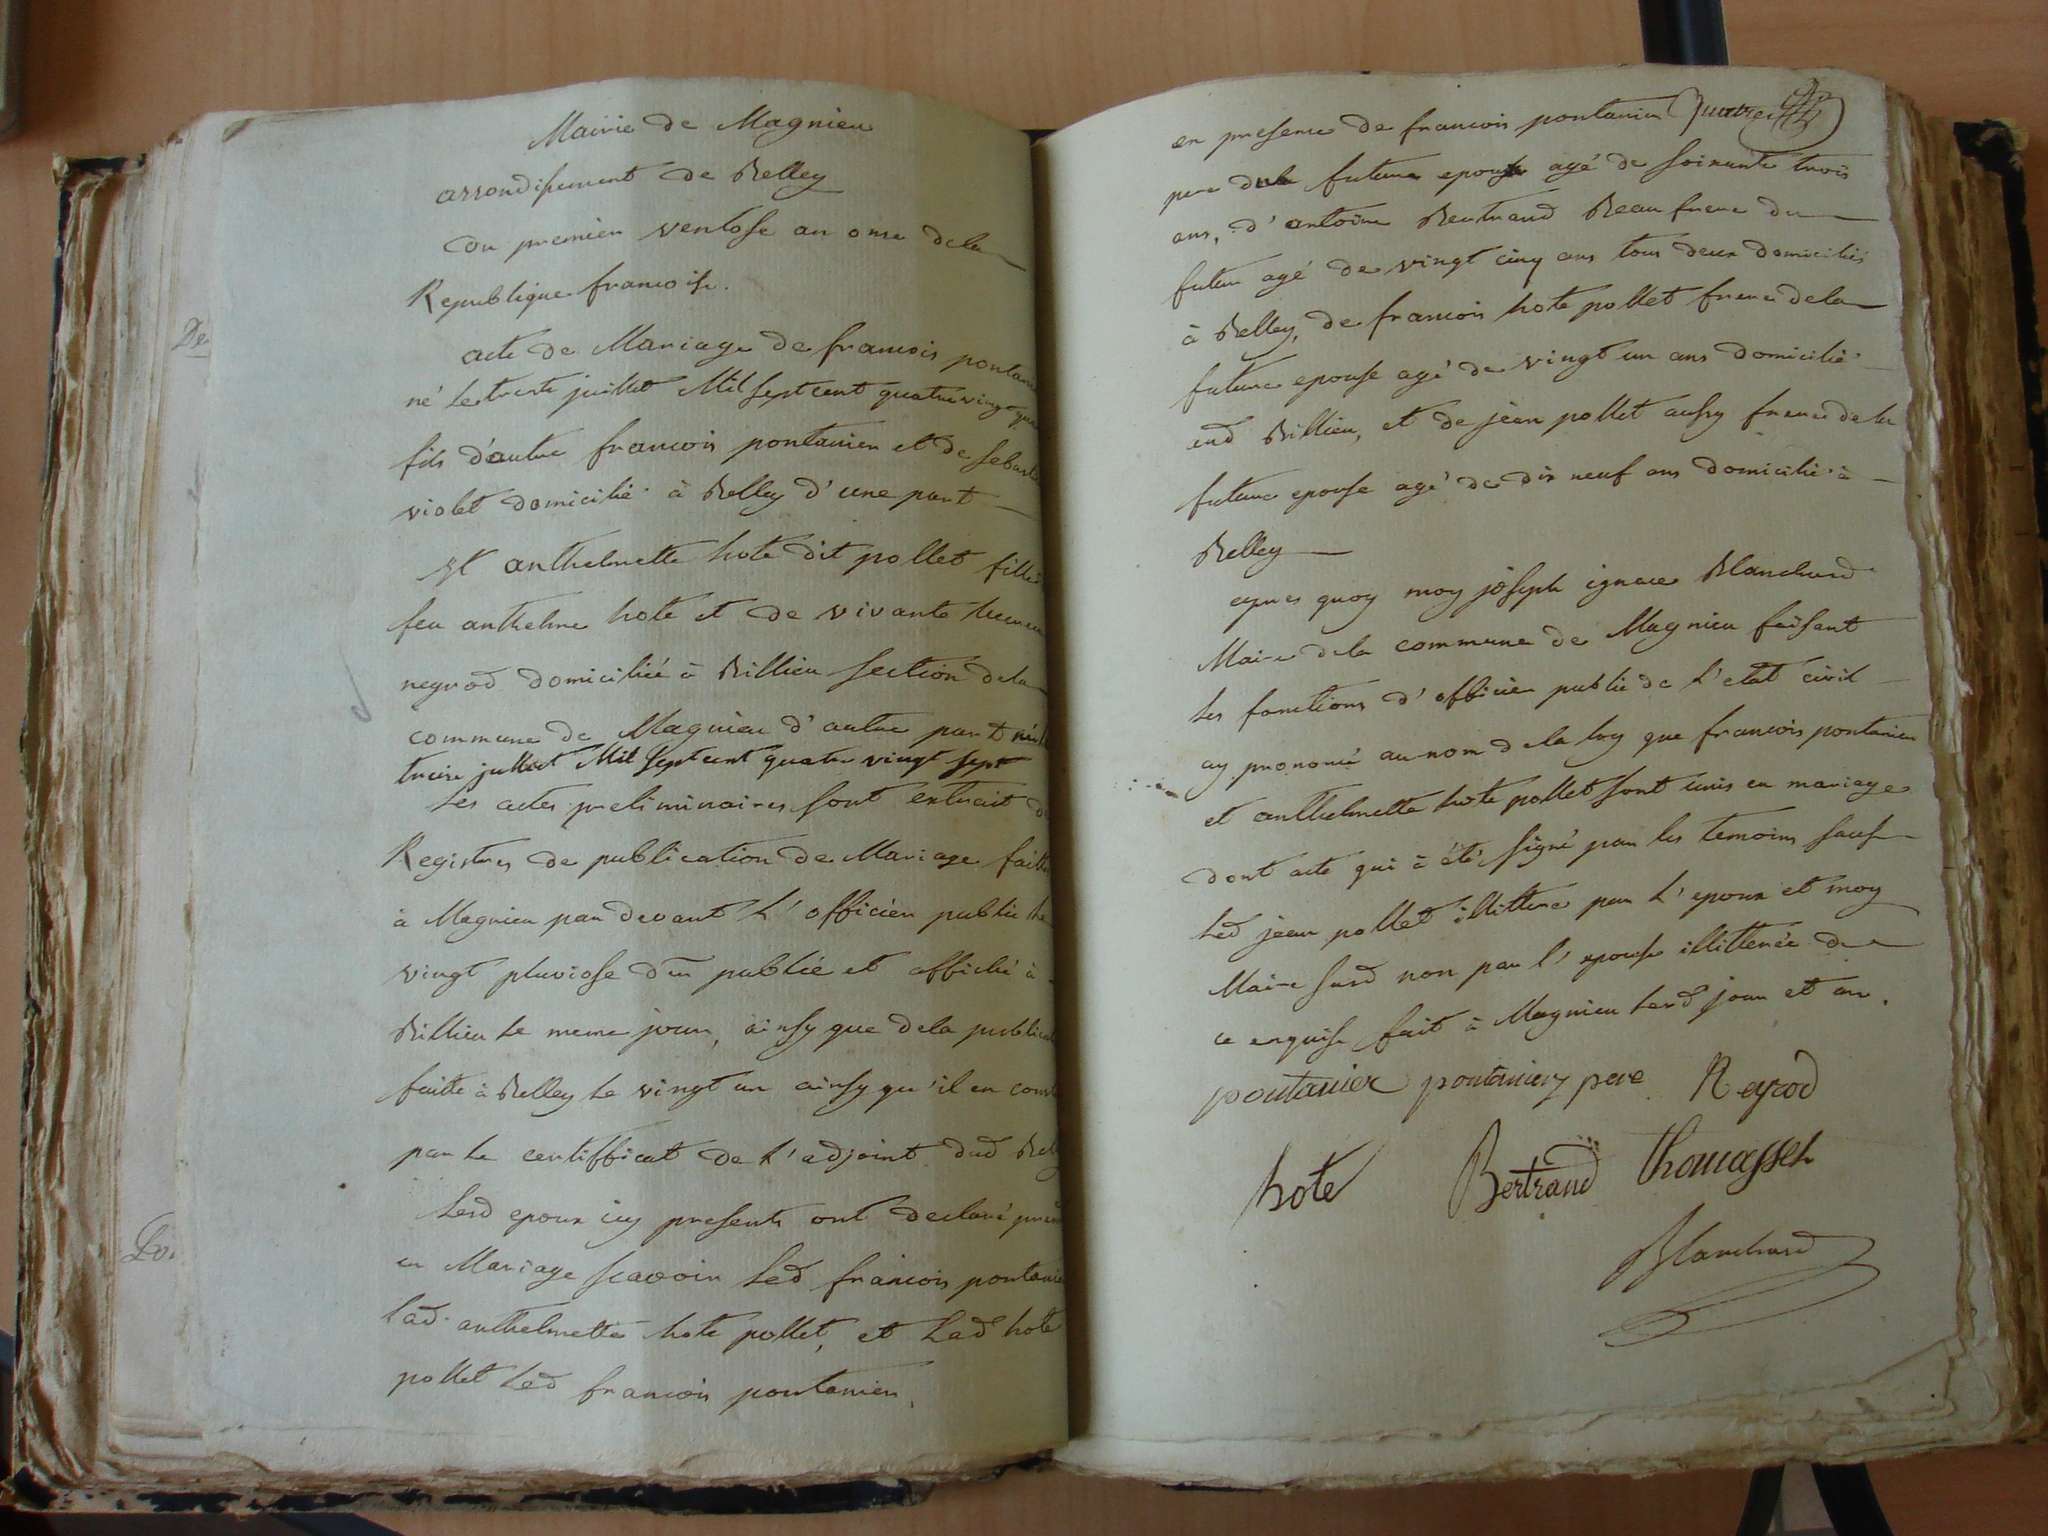 Mairie de Magnieu
arrondisement de Belley
Du premier ventose an onze dela
Republique francoise.
acte de Mariage de francois pontani
né le trente juillet Mil sept cent quatre vingt
fils d'autre francois pontanier et de
violet domicilié à Belley d'une part
Et anthelmette hote dit pollet fille
feu anthelme hote et de vivante
neyrod domiciliée à Billieu section dela
commune de Magnieu d'autre part
treize juillet Mil sept cent quatre vingt sept
Les actes preliminaires sont extrait
Registres de publication de Mariage faitte
à Magnieu par devant L'officier public le
vingt pluviose dr publié et affiché à
Billieu le meme jour, ainsy que dela
faitte à Belley le vingt un ainsy qu'il en
par le certifficat de L'adjoint dud
Lesd epoux icy presents ont declaré
en Mariage scavoir Led francois
Lad anthelmette hote pollet, et Lad hote
pollet Led francois pontanier.
De
Do.
en presence de francois pontanier
pere dela future epouse agé de soixante trois
ans, d'antoine Bertrand Beaufrere du
futur agé de vingt cinq ans tous deux domiciliés
à Belley, de francois hote pollet frere dela
future epouse agé de vingt un ans domicilié
aud Billieu, et de jean pollet aussy frere dela
future epouse agé de dix neuf ans domicilié à
Belley
apres quoy moy joseph ignace Blanchard
Maire dela commune de Magnieu faisant
les fonctions d'officier public de L'etat civil
ay prononcé au nom dela loy que francois pontanier
et anthelmette hote pollet sont unis en mariage
dont acte qui à été signé par les temoins sauf
Led jean pollet illittere par L'epoux et moy
Maire susd non par l'epouse illitterée de
ce enquise fait à Magnieu lesd jour et an.
pontanier pontanier pere Neyrod
hote Bertrand thomasset
Blanchard